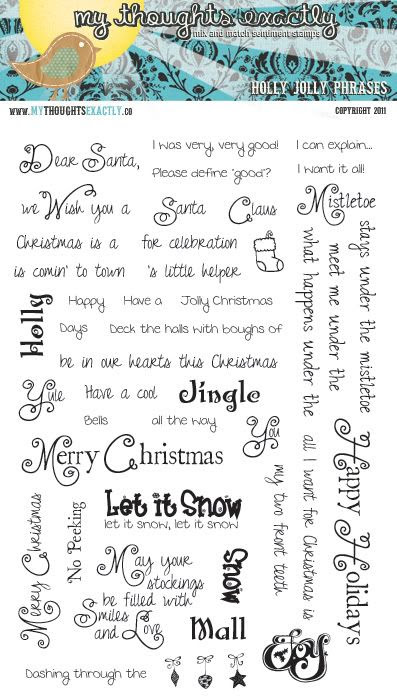 my thoughts exactly
mix and match sentiment stamps
HOLLY JOLLY PHRASES
WWW.MYTHOUGHTSEXACTLY.CO
COPYRIGHT 2011
Dear Santa,
I was very, very good!
I can explain...
Please define "good"?
I want it all!
we Wish you a
Santa
Claus
Mistletoe
Christmas is a
for celebration
is comin' to town
's little helper
stays under the mistletoe
meet me under the
what happens under the
Holly
Happy
Have a
Jolly Christmas
Days
Deck the halls with boughs of
be in our hearts this Christmas
Yule
Have a cool
Jingle
Bells
all the way
You
Merry Christmas
Happy Holidays
all I want for Christmas is
my two front teeth
Let it Snow
let it snow, let it snow
Merry Christmas
No Peeking
May your
stockings
be filled with
Smiles
and Love
Snow
Mall
Joy
Dashing through the